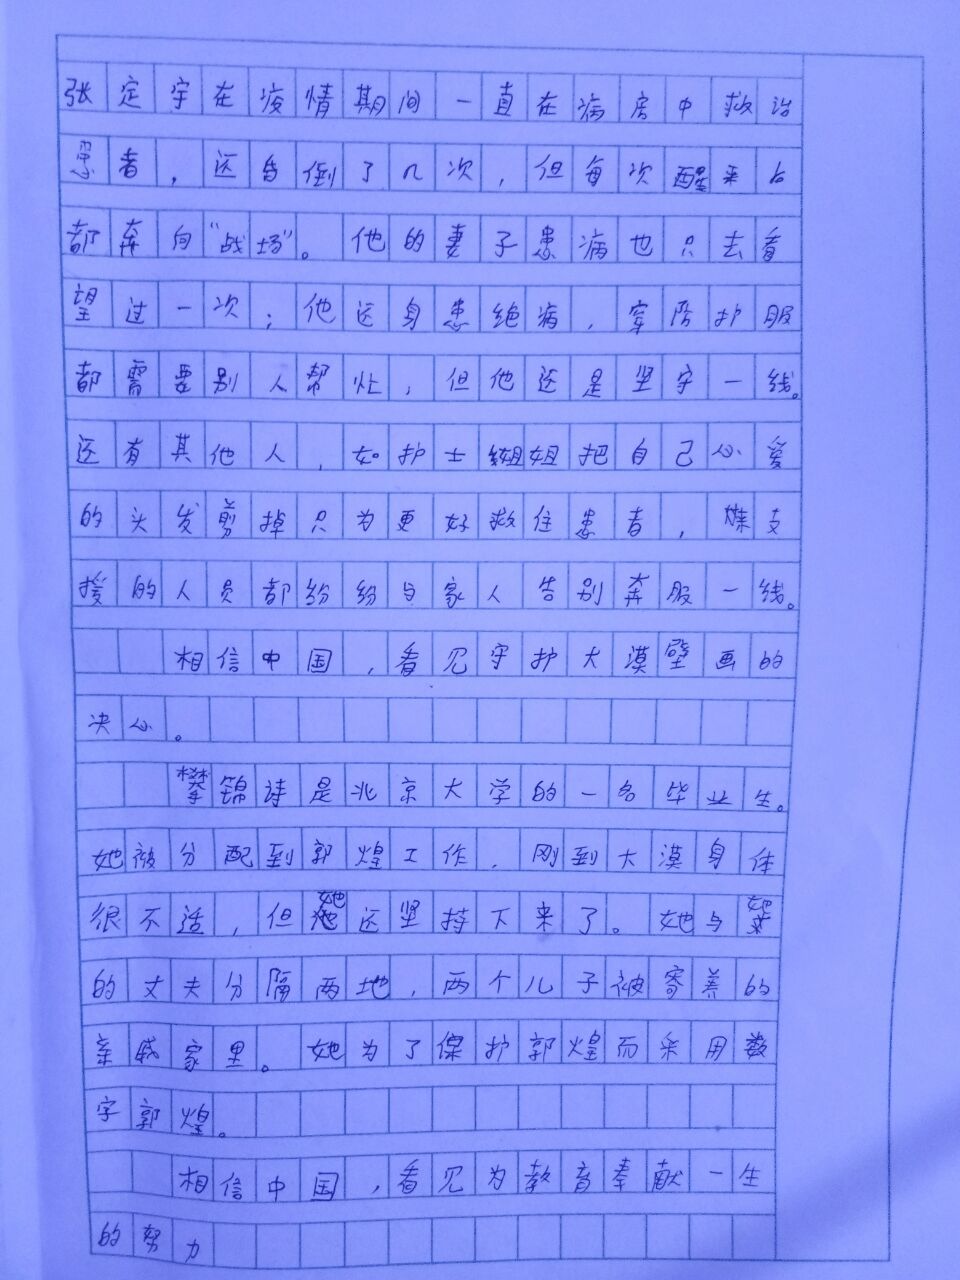 张定宇在疫情期间一直在病房中救治
患者，还昏倒了几次，但每次醒来后
都奔向“战场”。他的妻子患病也只去看
望过一次；他还身患绝病，穿防护服
都需要别人帮忙，但他还是坚守一线。
还有其他人，如护士姐姐把自己心爱
的头发剪掉只为更好救住患者，支
援的人员都纷纷与家人告别奔服一线。
相信中国，看见守护大漠壁画的
决心。
樊锦诗是北京大学的一名毕业生。
她被分配到郭煌工作，刚到大漠身体
很不适，但她还坚持下来了。她与
的丈夫分隔两地，两个儿子被寄养的
亲戚家里。她为了保护郭煌而采用数
字郭煌。
相信中国，看见为教育奉献一生
的努力